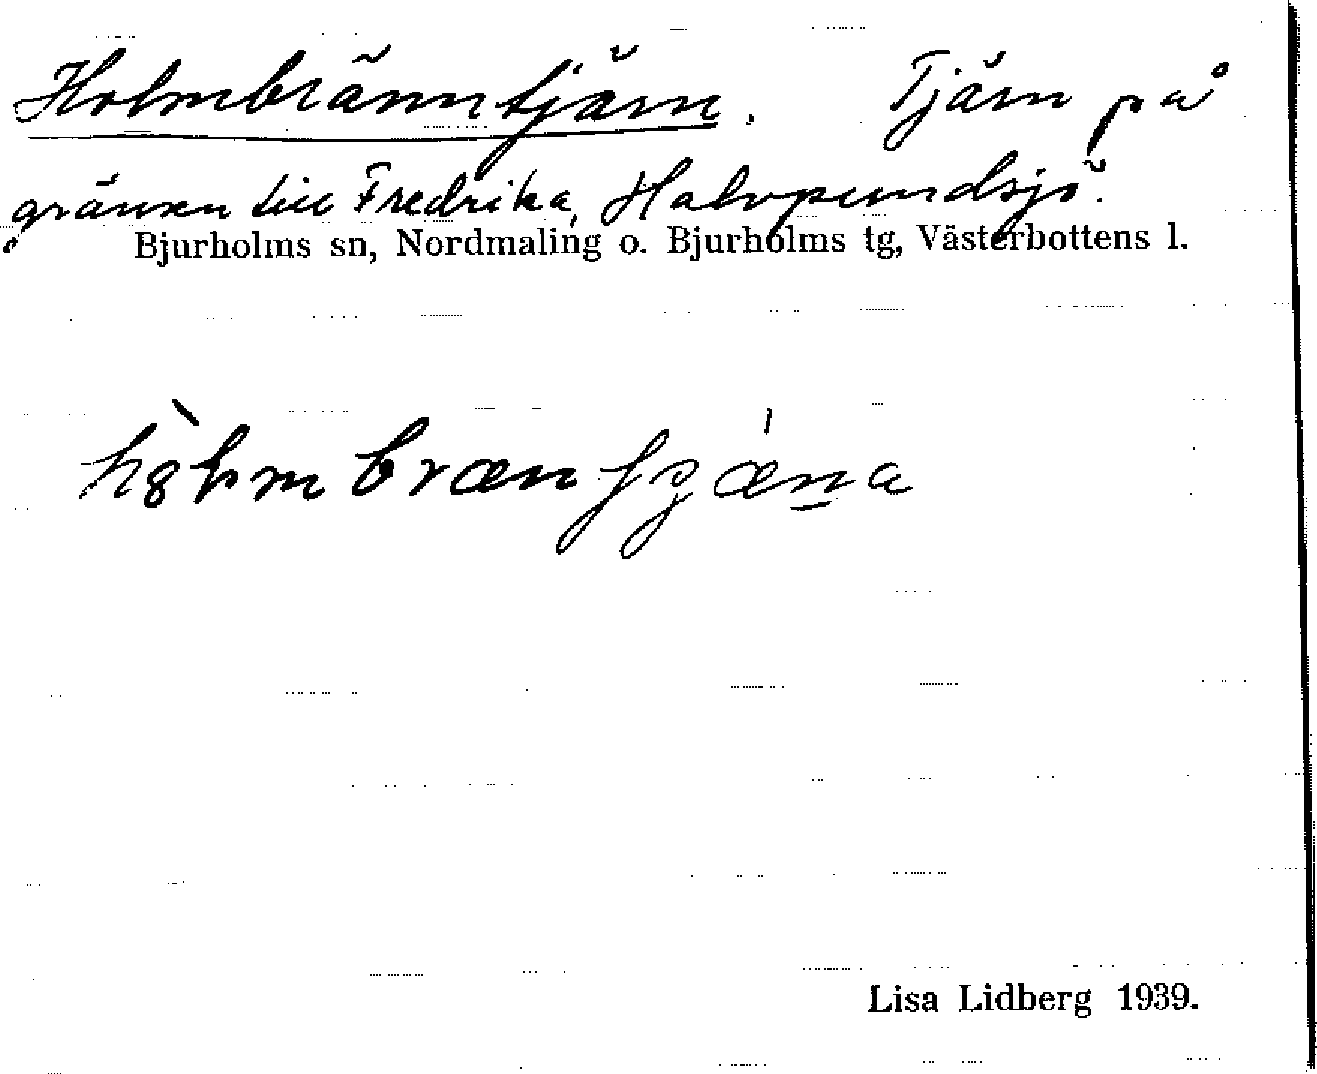 Holmbränntjärn. Tjärn på
gränsen till Fredrika, Halvpundsjö.
Bjurholms sn, Nordmaling o. Bjurholms tg, Västerbottens l.
Lisa Lidberg 1939.